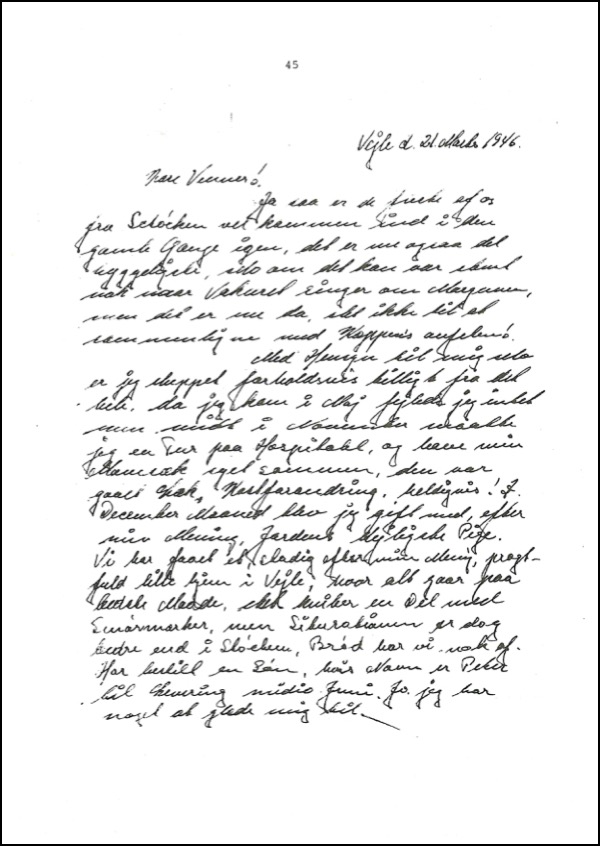 45
Vejle d. 21. Marts 1946.
Kære Venner!
Ja saa er de fleste af os
fra Stócken vel kommen ind i den
gamle Gænge igen, det er nu ogsaa det
hyggeligste, selv om det kan være sént
nok naar Vækuret ringer om Morgenen,
men det er nu da slet ikke til at
sammenligne med Kappens
Med Hensyn til mig selv
er jeg sluppet forholdsvis billigt fra det
hele, da jeg kom i Maj fejlede jeg intet
men midt i November maatte
jeg en Tur paa Hospitalet, og have min
Mavesæk syet sammen, den var
gaaet læk, Kostforandring, heldigvis! I
December Maaned blev jeg gift med, efter
min Mening, Jordens dejligste Pige.
Vi har faaet et, stadig efter min Mening, pragt-
fuld lille hjem i Vejle, hvor alt gaar paa
bedste Maade, det kniber en Del med
Smørmærker, men Sikurationen er dog
bedre end i Stócken, Bród har vi nok af.
Har bestilt en Són, hvis Navn er Peter
til Levering midio Juni. Jo jeg har
noget at glæde mig til.